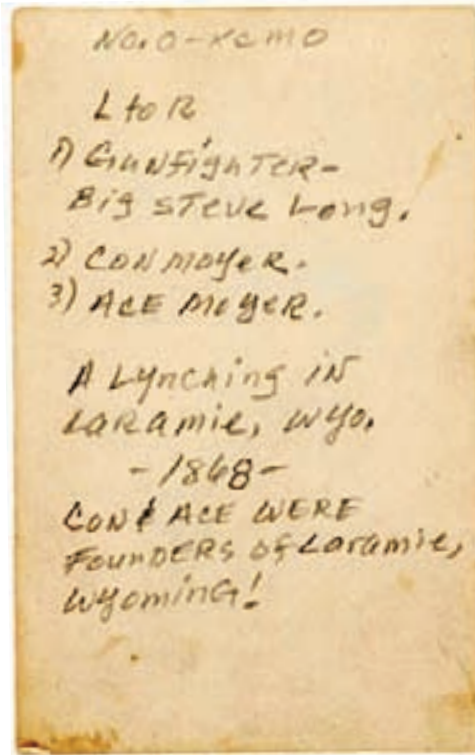 NO. 0-KCMO
L to R
1) GUNFIGHTER-
Big STEVE Long.
2) CON MOYER.
3) ACE MOYER.
A Lynching IN
LARAMIE, WYO.
- 1868 -
CON & ACE WERE
FOUNDERS of Laramie,
WYOMING!